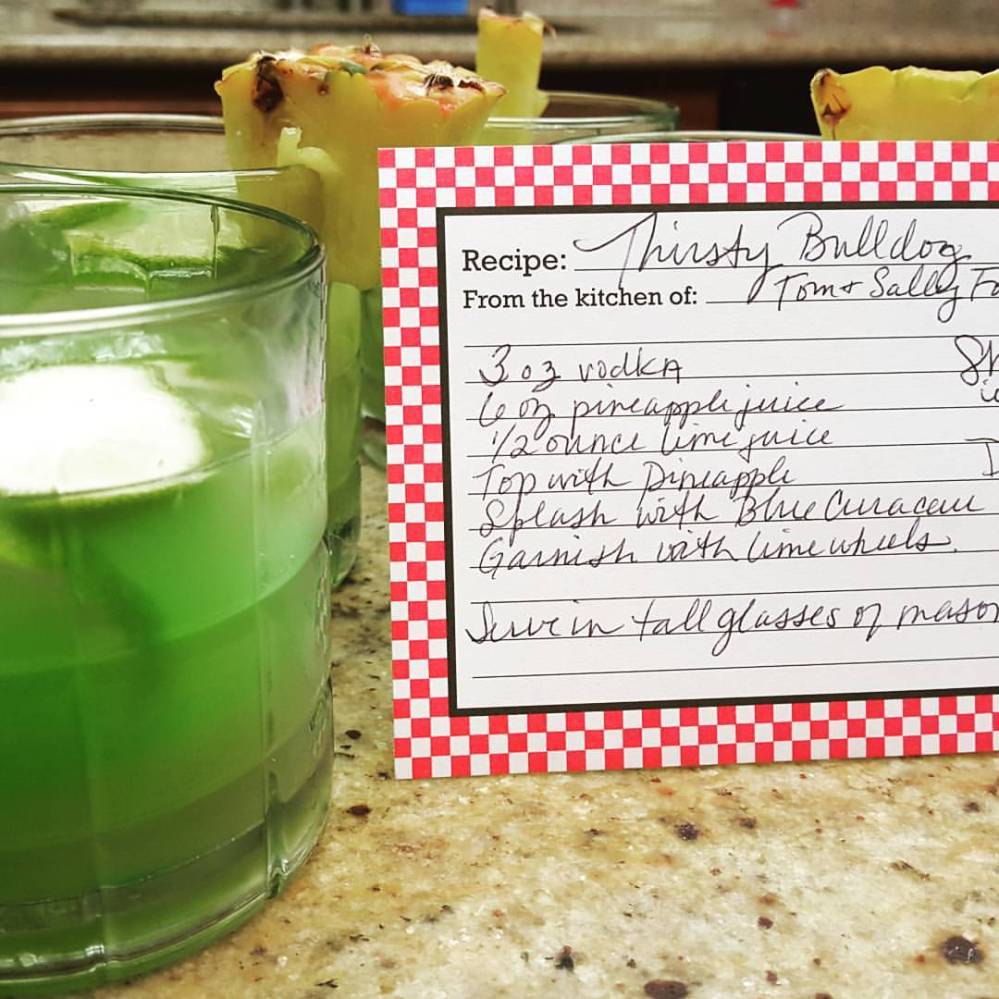 Recipe: Thirsty Bulldog
From the kitchen of: Tom + Sally
3 oz vodka
6 oz pineapple juice
1/2 ounce lime juice
Top with Pineapple
Splash with Blue Curaceu
Garnish with lime wheels.
Serve in tall glasses of mason